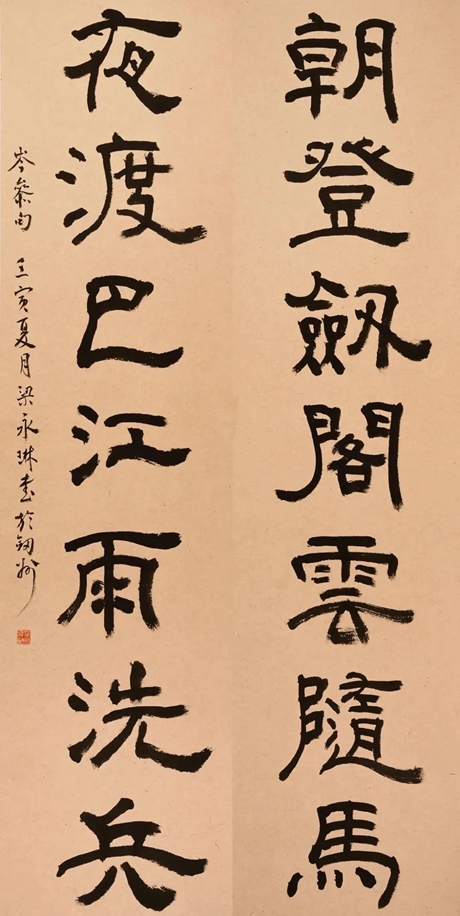 朝登劔閣雲隨馬
夜渡巴江雨洗兵
岑參句 壬寅夏月梁永琳書於劔州